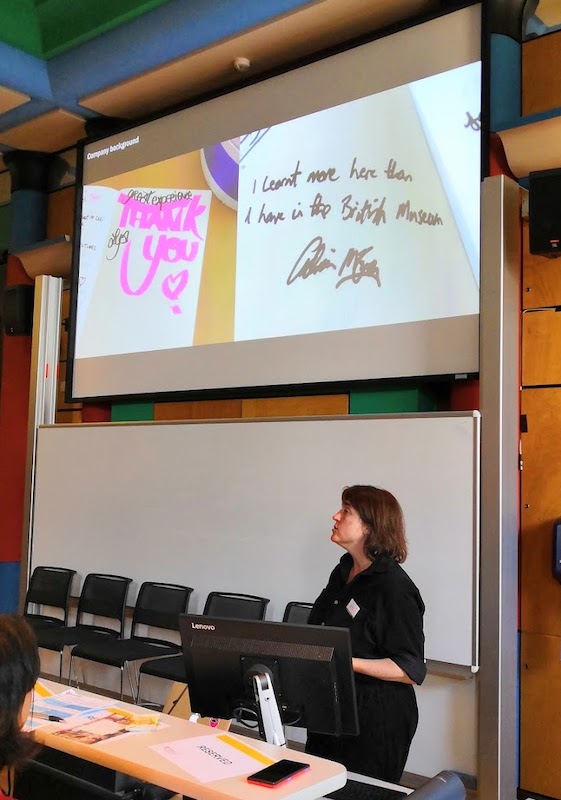 Company background
great experience
THANK
YOU
I learnt more here than
I have in the British Museum
Lenovo
RESERVED